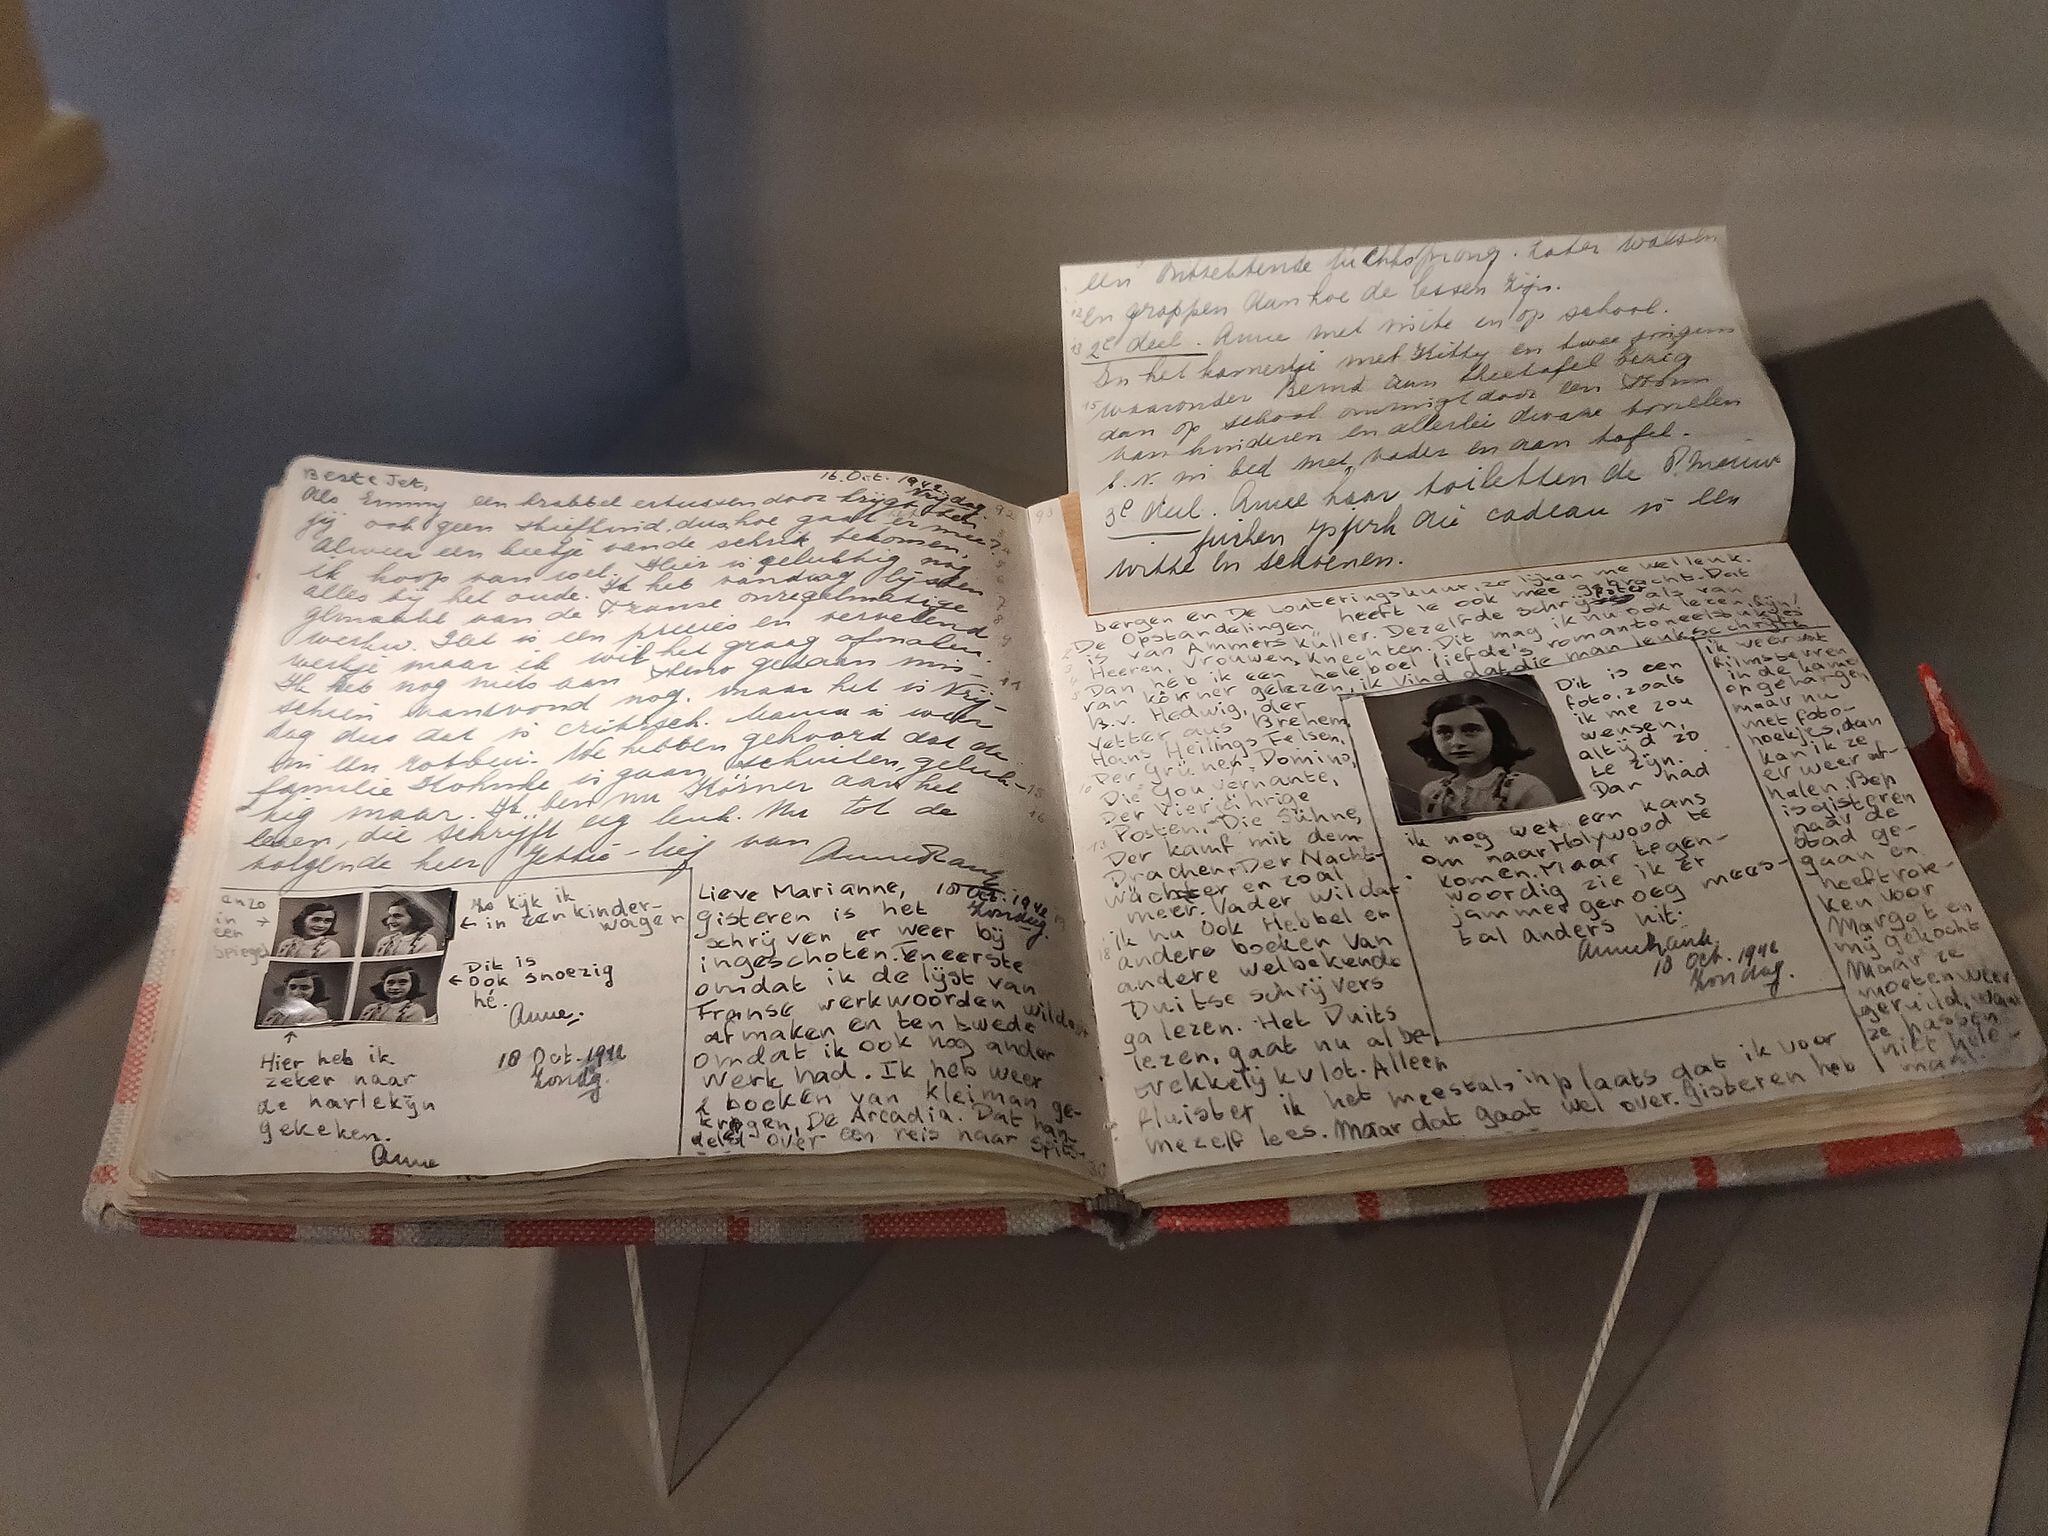 Beste Jet,
16. Oct. 1942
Vrijdag
Als Emmy een krabbel ertussen door krijgt ben
jij ook geen stiefkind, dus hoe gaat er mee?
Alweer een beetje van de schrik bekomen,
ik hoop van wel. Hier is gelukkig nog
alles bij het oude. Ik heb vandaag lijsten
gemaakt van de Franse onregelmatige
werkw. Het is een precies en vervelend
werkje maar ik wil het graag afmaken.
Ik heb nog niets aan Steno gedaan mis-
schien vanavond nog, maar het is Vrij-
dag dus dat is critisch. Mama is weer
in een rotbui. We hebben gehoord dat de
familie is gaan schuilen, geluk-
kig maar. Ik ben nu Körner aan het
lezen, die schrijft erg leuk. Nu tot de
volgende keer Jettie-lief van
Anne Frank
anzo
in
een
spiegel
Zo kijk ik
in een kinder-
wagen
Dit is
ook snoezig
hé.
Anne.
18 Oct. 1942
Zondag.
Hier heb ik
zeker naar
de harlekijn
gekeken.
Anne
Lieve Marianne,
18 Oct. 1942
Zondag.
gisteren is het
schrijven er weer bij
ingeschoten. Eneerste
omdat ik de lijst van
Franse werkwoorden wilde
afmaken en ten twede
omdat ik ook nog ander
werk had. Ik heb weer
2 boeken van Kleiman ge-
kregen, De Arcadia. Dat han-
delt over een reis naar Spits-
een ontzettende luchtsprong. Later walsen
en grappen aan hoe de lessen zijn.
2e deel. Anne met visite en op school.
In het kamertje met Kitty en twee jongens
waaronder Bernd aan theetafel bezig
dan op school omringd door een
van kinderen en allerlei dwaze tonelen
b.v. in bed met vader en aan tafel.
3e deel. Anne haar toiletten de
die cadeau is een
witte en schoenen.
bergen en De Louteringskuur, ze lijken me wel leuk.
De Opstandelingen heeft ie ook mee gebracht. Dat
is van Ammers Küller. Dezelfde schrijfster als van
Heeren, Vrouwen, Knechten. Dit mag ik nu ook lezen, fijn!
Dan heb ik een heleboel liefde's romantoneelstukjes
van Körner gelezen, ik vind dat die man leuk schrijft.
B.v. Hedwig, der
Vetter aus Brehem,
Hans Heilings Felsen,
Der Grünen Domino,
Die Gouvernante,
Der Vierjährige
Posten, Die Sühne,
Der Kamf mit dem
Drachen, Der Nacht-
wächter en zoal
meer. Vader wil dat
ik nu ook Hebbel en
andere boeken van
andere welbekende
Duitse schrijvers
ga lezen. Het Duits
lezen, gaat nu al be-
trekkelijk vlot. Alleen
fluister ik het meestal, inplaats dat ik voor
mezelf lees. Maar dat gaat wel over. Gisteren heb
Dit is een
foto, zoals
ik me zou
wensen,
altijd zo
te zijn.
Dan had
ik nog wel een kans
om naar Holywood te
komen. Maar tegen-
woordig zie ik er
jammer genoeg mees-
tal anders uit.
Anne Frank.
18 Oct. 1942
Zondag.
ik weer wat
filmsterren
in de kamer
opgehangen
maar nu
met foto-
hoekjes, dan
kan ik ze
er weer af-
halen. Bep
is gisteren
naar de
stad ge-
gaan en
heeft rok-
ken voor
Margot en
mij gekocht
Maar ze
moeten weer
geruild, want
ze passen
niet hele-
maal.